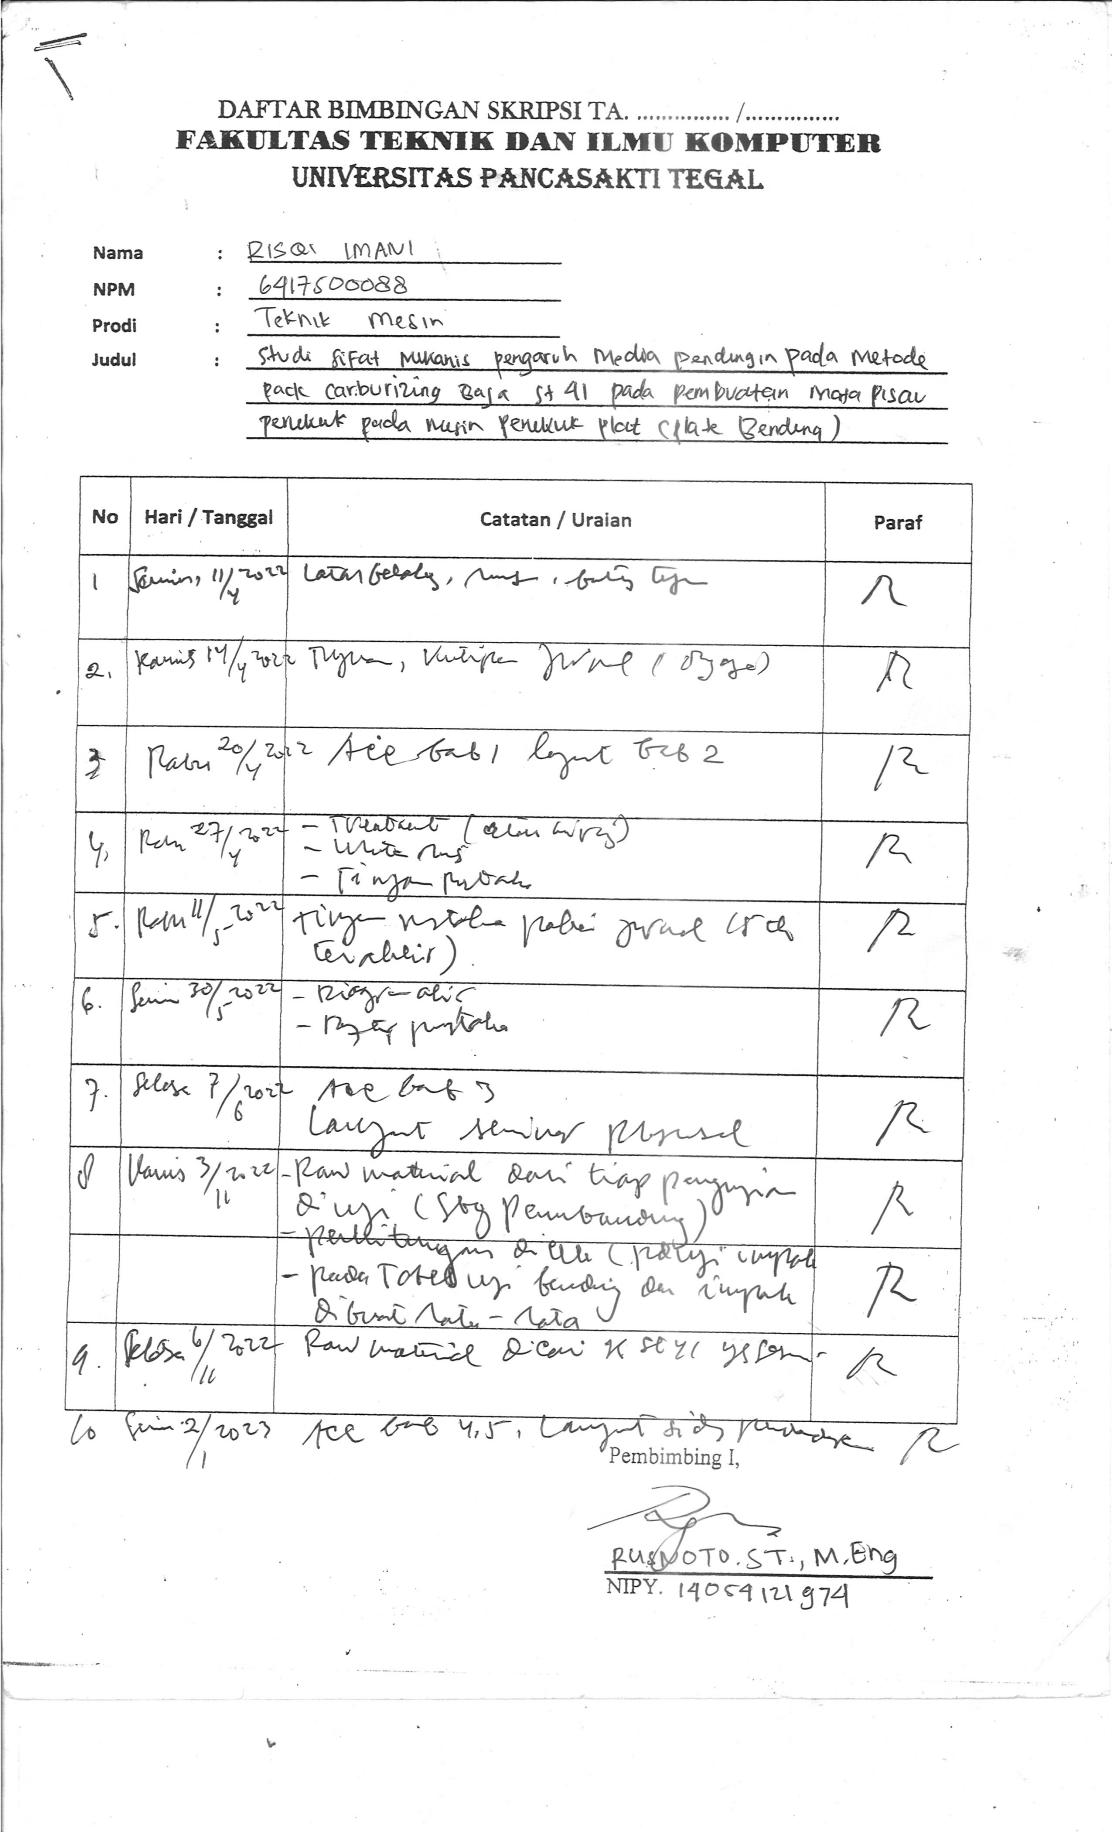 DAFTAR BIMBINGAN SKRIPSI TA. ............... /...............
FAKULTAS TEKNIK DAN ILMU KOMPUTER
UNIVERSITAS PANCASAKTI TEGAL
Nama : RISQI IMANI
NPM : 6417500088
Prodi : Teknik Mesin
Judul : Studi Sifat Mekanis pengaruh Media Pendingin pada Metode
pack carburizing Baja st 41 pada pembuatan Mata Pisau
penekuk pada mesin Penekuk plat (plate Bending)
No Hari / Tanggal Catatan / Uraian Paraf
1 Senin, 11/4 2022 Latar belakang,
2. Kamis 14/4 2022 Tujuan, Kutipan Jurnal
3 Rabu 20/4 2022 Acc bab 1 lanjut bab 2
4. Rabu 27/4 2022 - Treatment
- Tinjauan pustaka
5. Rabu 11/5-2022 tinjauan pustaka jurnal (5 th
terakhir)
6. Senin 30/5-2022 - Diagram alir
- Daftar pustaka
7. Selasa 7/6 2022 Acc bab 3
Lanjut seminar proposal
8 Kamis 3/11 2022 - Raw material dari tiap pengujian
diuji (sbg pembanding)
- perhitungan di cek (pd uji impak
- pada Tabel uji bending dan impak
dibuat rata-rata
9. Selasa 6/11 2022 Raw material dicari
10 Senin 2/1 2023 Acc bab 4,5, Lanjut
Pembimbing I,
RUSNOTO. ST., M.Eng
NIPY. 14054121974